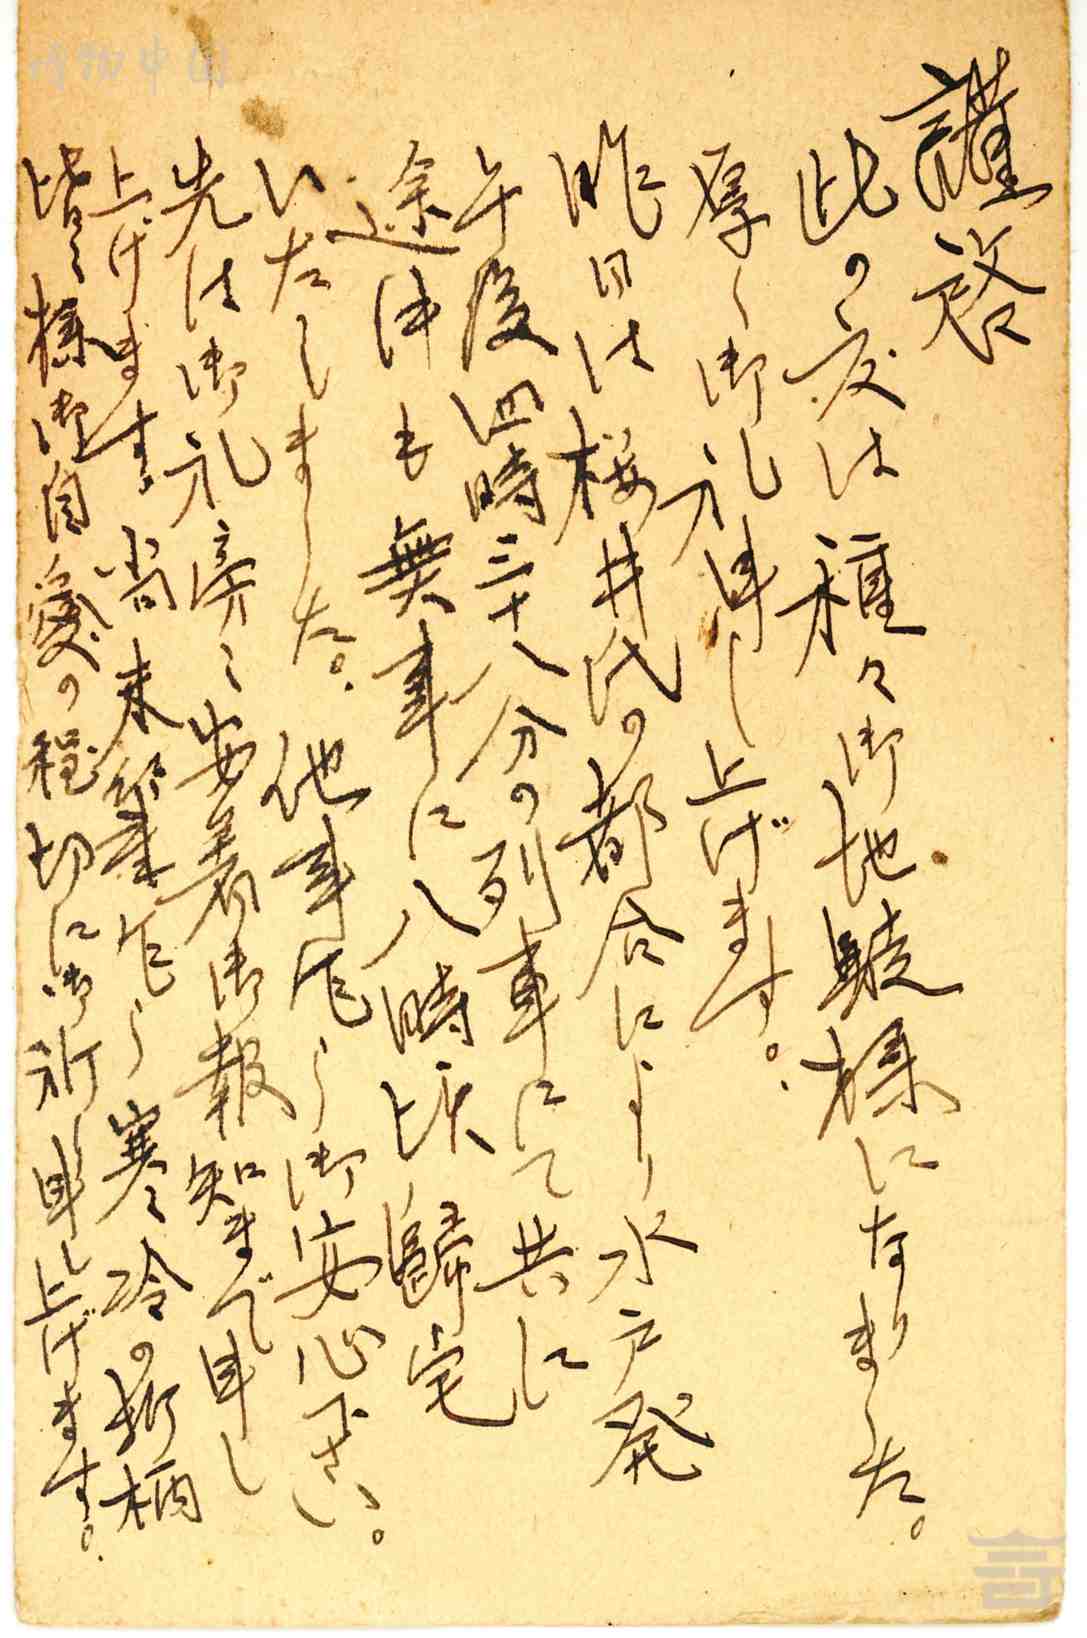 謹啓
此の度は種々御地走様になりました。
厚く御礼申し上げます。
昨日は桜井氏の都合により水戸発
午後四時三十八分の列車にて共に
途中も無事に八時頃帰宅
いたしました。他事乍ら御安心下さい。
先は御礼旁々安着御報知まで申し
上げます。尚末筆乍ら寒冷の折柄
皆々様御自愛の程切に御祈り申上げます。